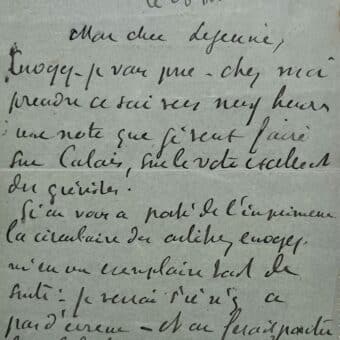 Mon cher Lejeune,
Envoyez-je vous prie - chez moi
prendre ce soir vers neuf heures
une note que je veux faire
sur Calais, sur le vote excellent
des grévistes.
Si on vous a porté de l'imprimerie
la circulaire des artistes, envoyez
m'en un exemplaire tout de
suite : je verrai s'il n'y a
pas d'erreur - et on ferait